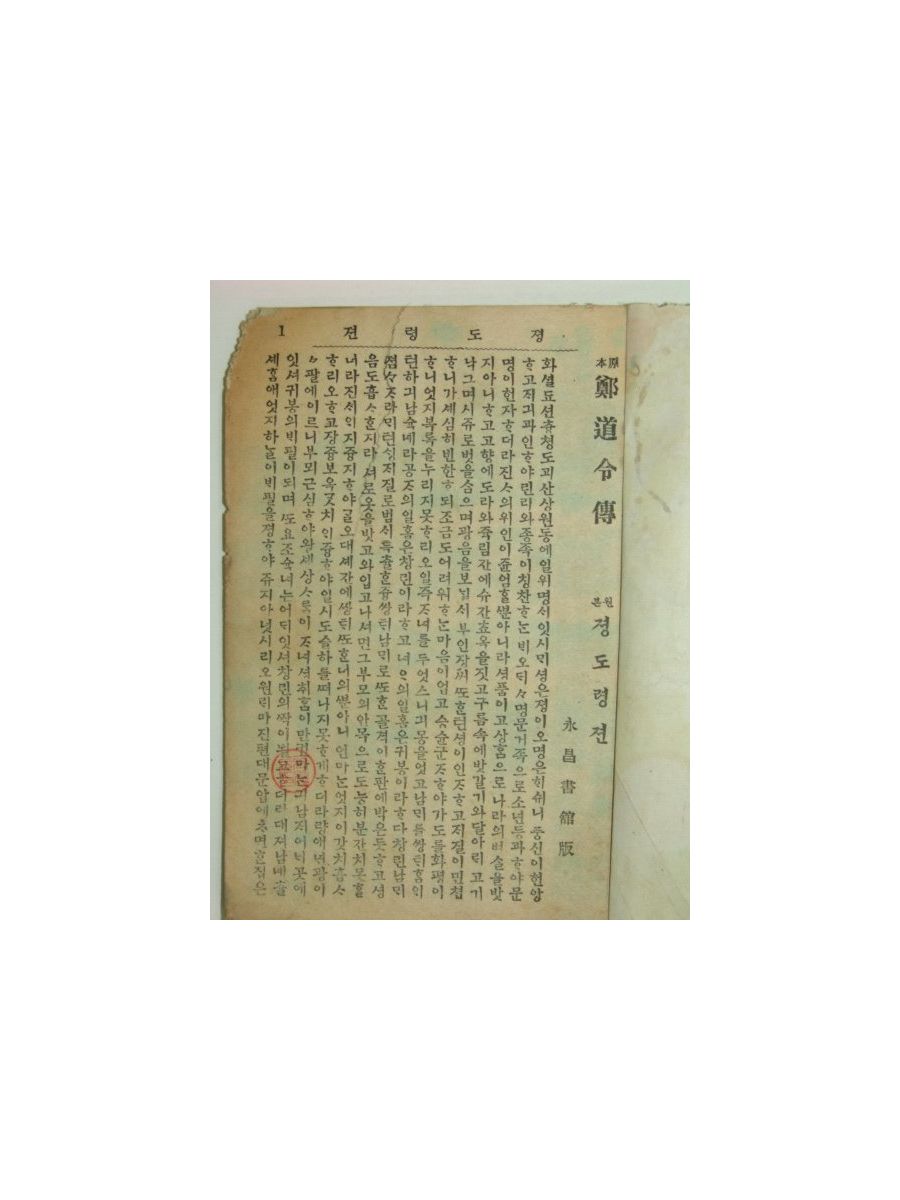 原本 鄭道令傳
원본 졍도령젼
永昌書館版
졍도령젼 1
화셜됴션츙쳥도괴산상원동에일위명서잇시되셩은졍이오명은희쉬니풍신이헌앙
ᄒᆞ고저긔과인ᄒᆞ야린리와종족이칭찬ᄒᆞᄂᆞᆫ비오ᄃᆡᄃᆡ명문거족으로소년등과ᄒᆞ야문
명이헌자ᄒᆞ더라진ᄉᆞ의위인이쥰엄ᄒᆞᆯᄲᅮᆫ아니라셩품이고상ᄒᆞᆷ으로나라의벼슬을밧
지아니ᄒᆞ고고향에도라와쥭림간에슈간효옥을짓고구름속에밧갈기와달아ᄅᆡ고기
낙그며시쥬로벗을슴으며광음을보ᄂᆡᆯᄉᆡ부인장씨ᄯᅩᄒᆞᆫ텬셩이인ᄌᆞᄒᆞ고저질이민쳡
ᄒᆞ니가셰심히빈한ᄒᆞ되조금도어려워ᄒᆞᄂᆞᆫ마음이업고승슌군ᄌᆞᄒᆞ야가도를화평이
ᄒᆞ니엇지복록을누리지못ᄒᆞ리오일즉ᄌᆞ녀를두엇스니긔몽을엇고남ᄆᆡ를쌍ᄐᆡᄒᆞᆷ이
런하긔남슉녜라공ᄌᆞ의일홈은창린이라ᄒᆞ고녀ᄋᆞ의일홈은귀봉이라ᄒᆞ다창린남ᄆᆡ
졈졈ᄌᆞ라ᄆᆡ런싱저질로범서특츌ᄒᆞᆫ즁쌍ᄐᆡ남ᄆᆡ로ᄯᅩᄒᆞᆫ골격이ᄒᆞᆫ판에박은듯ᄒᆞ고셩
음도흡ᄉᆞᄒᆞᆫ지라셔로옷을밧고와입고나셔면그부모의안목으로도능히분간치못ᄒᆞᆯ
너라진ᄉᆡᄋᆡ지즁지ᄒᆞ야ᄀᆞᆯ오대셰간에쌍ᄐᆡᄯᅩᄒᆞᆫ너의ᄲᅮᆫ아니언마ᄂᆞᆫ엇지이갓치흡ᄉᆞ
ᄒᆞ리오ᄒᆞ고장즁보옥ᄀᆞᆺ치ᄋᆡ즁ᄒᆞ야일시도슬하를ᄯᅥ나지못ᄒᆞ게ᄒᆞ더라량애년광이
이팔에이르니부뫼근심ᄒᆞ야왈셰상ᄉᆞᄅᆞᆷ이ᄌᆞ녀셔취ᄒᆞᆷ이만컨마ᄂᆞᆫ긔남저어ᄂᆡ곳에
잇셔귀봉의ᄇᆡ필이되며ᄯᅩ요조슉녀ᄂᆞᆫ어ᄃᆡ잇셔창린의ᄶᅡᆨ이될고ᄒᆞ더라대져남녜츌
셰ᄒᆞᆷ애엇지하ᄂᆞᆯ이ᄇᆡ필을졍ᄒᆞ야쥬지아넛시리오원ᄅᆡ마진편대문압에초며ᄒᆞᆫ집은